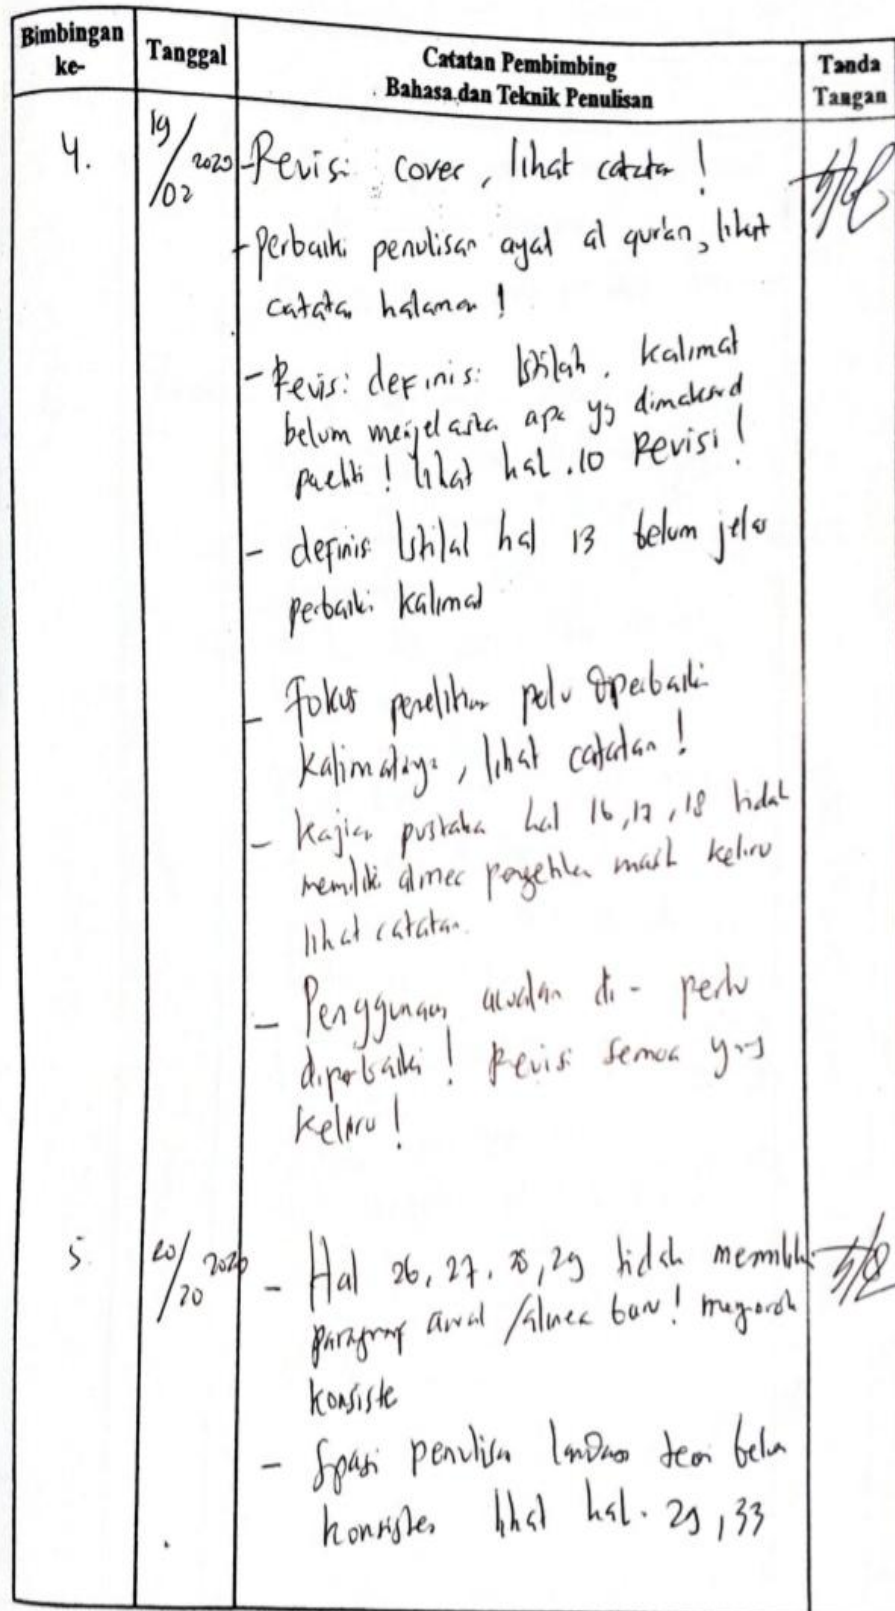 Bimbingan ke-
Tanggal
Catatan Pembimbing
Bahasa dan Teknik Penulisan
Tanda Tangan
4.
19/02 2020
- Revisi cover, lihat catatan !
- Perbaiki penulisan ayat al qur'an, lihat
catatan halaman !
- Revisi definisi Istilah. Kalimat
belum menjelaska apa yg dimaksud
! lihat hal. 10 Revisi !
- definisi Istilah hal 13 belum jelas
perbaiki kalimat
- Fokus penelitian perlu diperbaiki
kalimatnya, lihat catatan !
- Kajian pustaka hal 16, 17, 18 tidak
memiliki alinea masih keliru
lihat catatan.
- Penggunaan awalan di- perlu
diperbaiki ! Revisi semua yang
keliru !
5.
20/20 2020
- Hal 26, 27, 28, 29 tidak memiliki
paragraf awal /alinea baru !
konsiste
- Spasi penulisan landasan teori belum
konsisten lihat hal. 29, 33